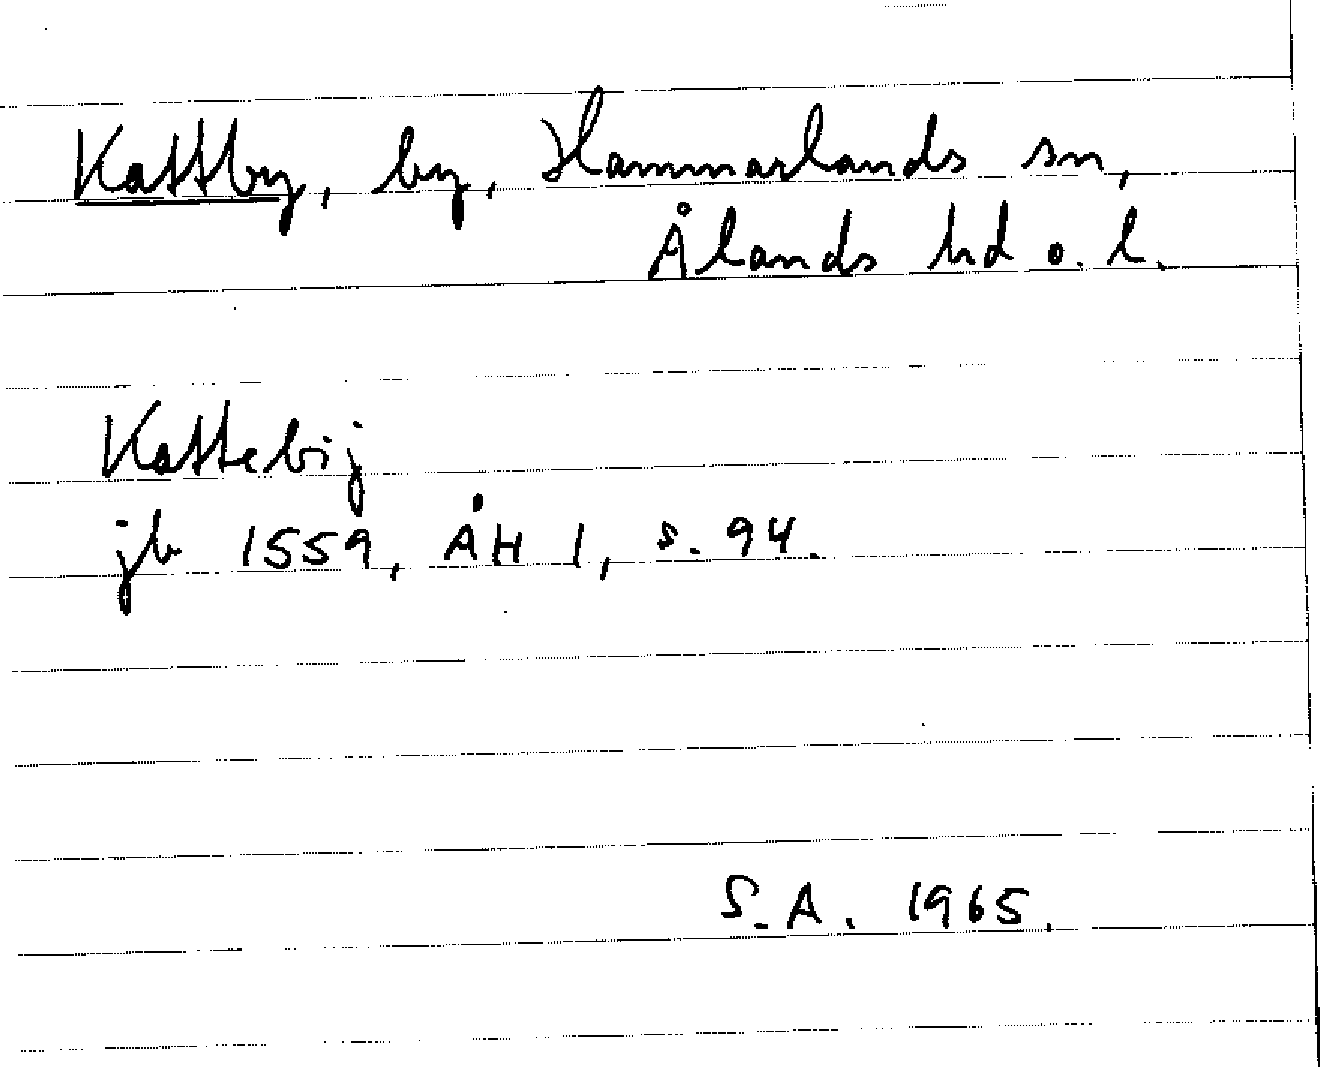 Kattby, by, Hammarlands sn,
Ålands hd o. l.
Kattebij
jb 1559, ÅH 1, s. 94.
S.A. 1965.